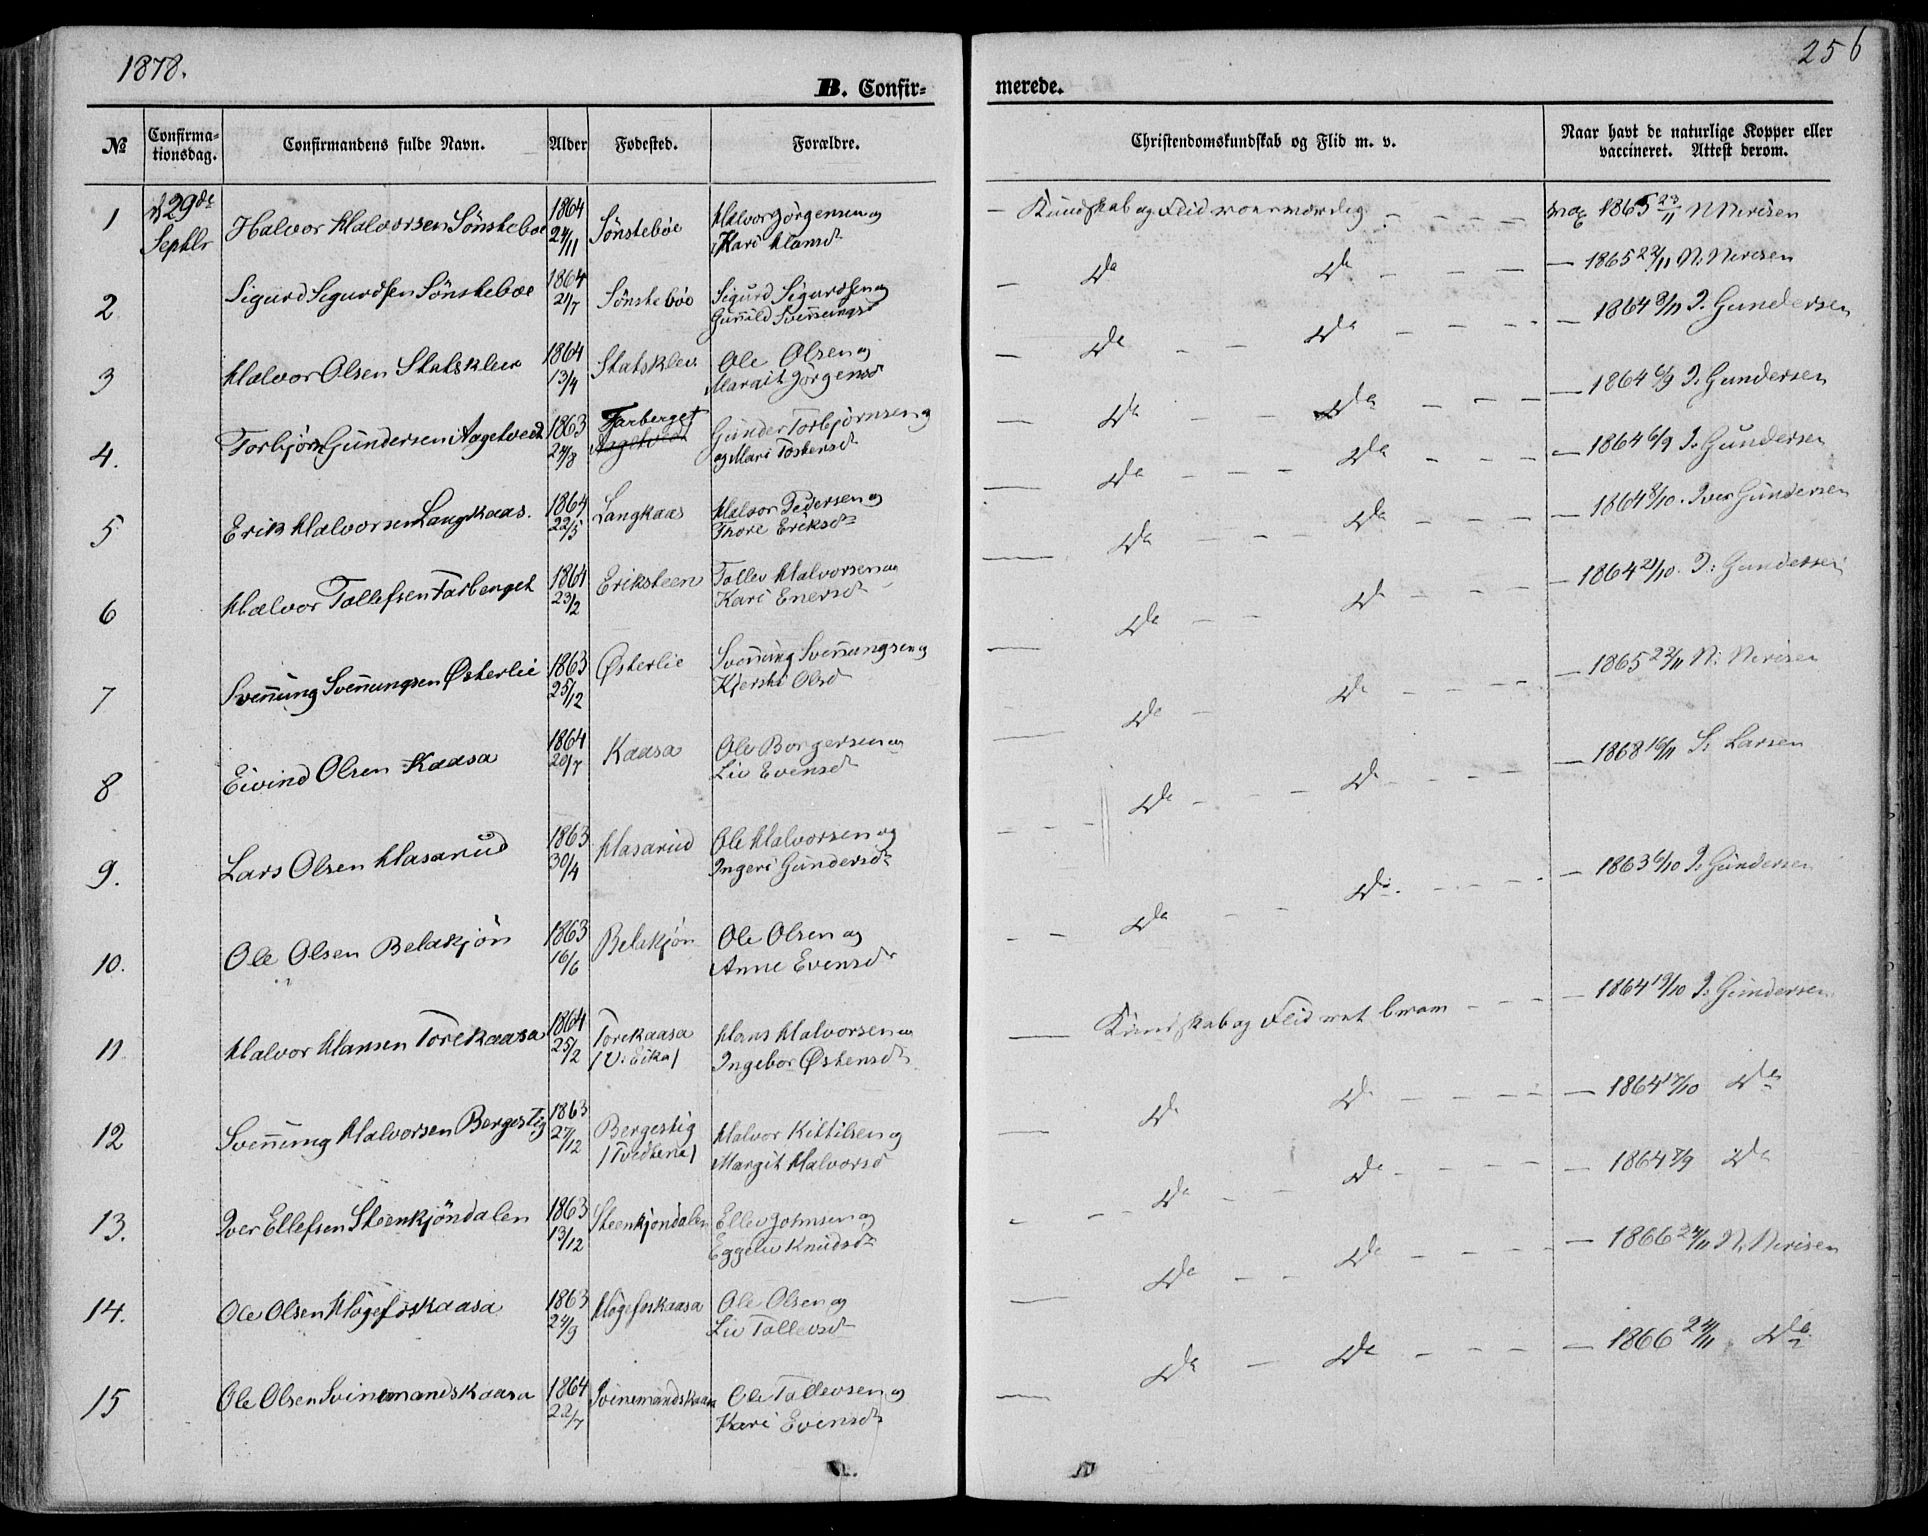 1878.
256
B. Confir-
merede.
№
Confirma-
tionsdag.
Confirmandens fulde Navn.
Alder
Fødested.
Forældre.
Christendomskundskab og Flid m. v.
Naar havt de naturlige Kopper eller
vaccineret. Attest derom.
1 d 29de Septbr Halvor Halvorsen Sønsteboe 1864 24/11 Sønstebøe Halvor Jörgensen og Kari Hansd Kundskab og Flid vac 1865 23/11 N Nerisen
2 Sigurd Sigurdsen Sönsteboe 1864 21/7 Sönstebøe Sigurd Sigurdsen og Gunild Svennungsd Do Do 1865 22/11 N. Nerisen
3 Halvor Olsen Statskleiv 1864 13/4 Statsklev Ole Olsen og Margit Jörgensd Do Do 1864 8/11 I. Gundersen
4. Torbjörn Gundersen Aagetvedt 1863 24/8 Farberget Aagetvedt Gunder Torbjørnsen og Mari Tostensd Do Do 1864 6/9 I. Gundersen
5 Erik Halvorsen Langkaas. 1864 22/5 Langkaas Halvor Pedersen og Thore Eriksdr Do Do 1864 6/9 I. Gundersen
6 Halvor Tollefsen Farberget 1864 23/2 Eriksteen Tollev Halvorsen og Kari Enersd Do Do 1864 8/10. Iver Gundersen
7 Svennung Svennungsen Østerlie 1863 25/12 Østerlie Svennung Svennungsen og Kjersti Olsd Do Do 1864 21/10. I: Gundersen
8 Eivind Olsen Kaasa 1864 20/7 Kaasa Ole Borgersen og Liv Evensd Do Do 1865 22/11 N: Nerisen
9. Lars Olsen Hasarud 1863 30/4 Hasarud Ole Halvorsen og Ingeri Gundersdr Do Do 1868 16/11 S: Larsen
10. Ole Olsen Belakjön 1863 16/6 Belekjön Ole Olsen og Anne Evensdr Do Do. 1863 6/10 I. Gundersen
11 Halvor Hansen Torekaasa 1864 25/2 Torekaasa /V. Eika/ Hans Halvorsen og Ingebor Østensdr Kundskab og Flid 1864 19/10 I. Gundersen
12 Svennung Halvorsen Bergestig 1863 27/12 Bergestig /Tvedtene/ Halvor Kittilsen og Margit Halvorsd Do Do 1864 17/10 Do
13. Iver Ellefsen Steenkjöndalen 1863 13/12 Steenkjöndalen Ellev Johnsen og Eggeliv Knudsdr Do Do 1864 7/9 Do
14. Ole Olsen Högefoskaasa 1863 24/9 Högefoskaasa Ole Olsen og Liv Tollevsdr Do Do 1866 24/11 N. Nerisen
15 Ole Olsen Svinemandskaasa 1864 22/7 Svinemandskaasa Ole Tollevsen og Kari Evensdr Do Do 1866 24/11 Do